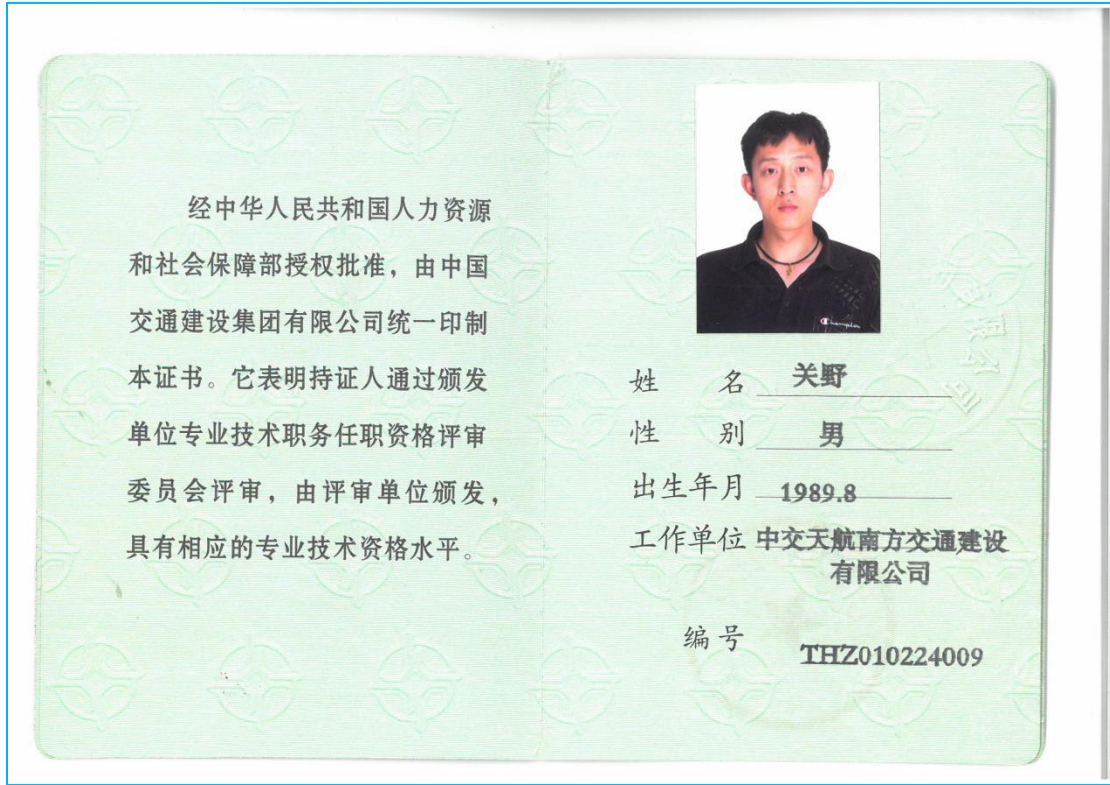 经中华人民共和国人力资源
和社会保障部授权批准，由中国
交通建设集团有限公司统一印制
本证书。它表明持证人通过颁发
单位专业技术职务任职资格评审
委员会评审，由评审单位颁发，
具有相应的专业技术资格水平。
Champion
有限公司
姓 名 关野
性 别 男
出生年月 1989.8
工作单位 中交天航南方交通建设
有限公司
编号 THZ010224009